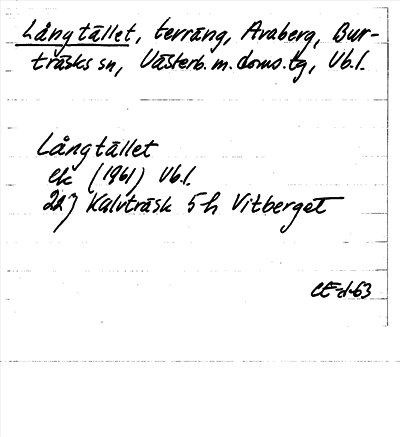 Långtället, terräng, Avaberg, Bur-
träsks sn, Västerb. m. doms.tg, Vb.l.
Långtället
ek (1961) Vb.l.
22J Kalvträsk 5h Vitberget